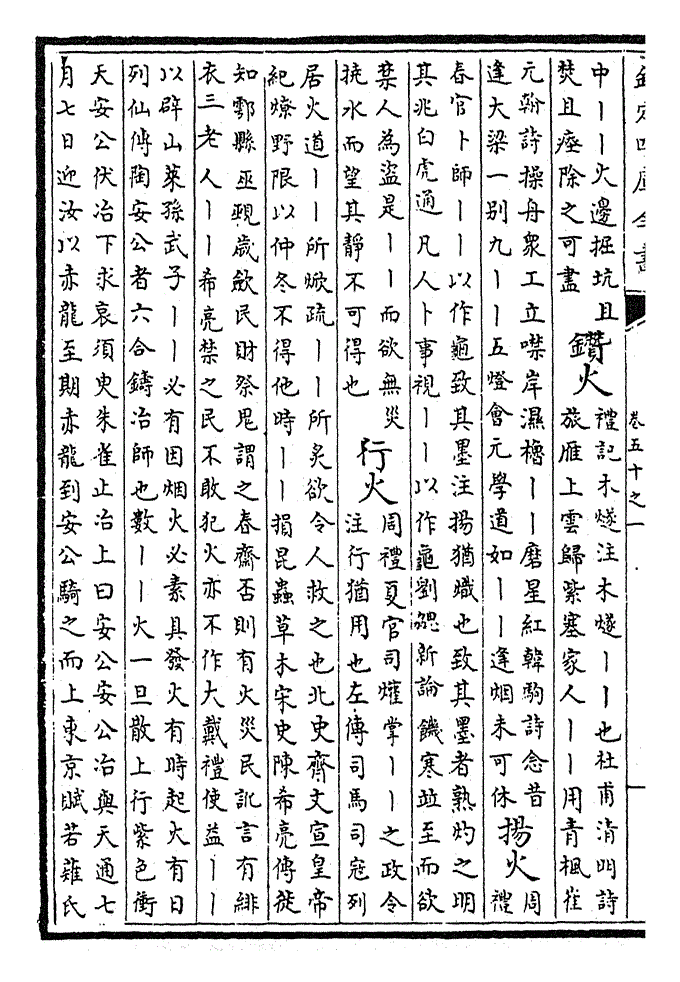 欽定四庫全書
卷五十之一
一
中丨丨火邊掘坑且
焚且瘞除之可盡
鑽火
禮記木燧注木燧丨丨也杜甫清明詩
旅雁上雲歸紫塞家人丨丨用青楓崔
元翰詩操舟衆工立噤岸濕櫓丨丨磨星紅韓駒詩念昔
逢大梁一别九丨丨五燈會元學道如丨丨逢烟未可休
揚火
周
禮
春官卜師丨丨以作龜致其墨注揚猶熾也致其墨者熟灼之明
其兆白虎通凡人卜事視丨丨以作龜劉勰新論饑寒並至而欲
禁人為盜是丨丨而欲無災
撓水而望其靜不可得也
行火
周禮夏官司爟掌丨丨之政令
注行猶用也左傳司馬司寇列
居火道丨丨所焮疏丨丨所炙欲令人救之也北史齊文宣皇帝
紀燎野限以仲冬不得他時丨丨損昆蟲草木宋史陳希亮傳徙
知鄠縣巫覡歲歛民財祭鬼謂之春齋否則有火災民訛言有緋
衣三老人丨丨希亮禁之民不敢犯火亦不作大戴禮使益丨丨
以辟山萊孫武子丨丨必有因烟火必素具發火有時起火有日
列仙傳陶安公者六合鑄冶師也數丨丨火一旦散上行紫色衝
天安公伏冶下求哀須臾朱雀止冶上曰安公安公冶與天通七
月七日迎汝以赤龍至期赤龍到安公騎之而上東京賦若雖氏